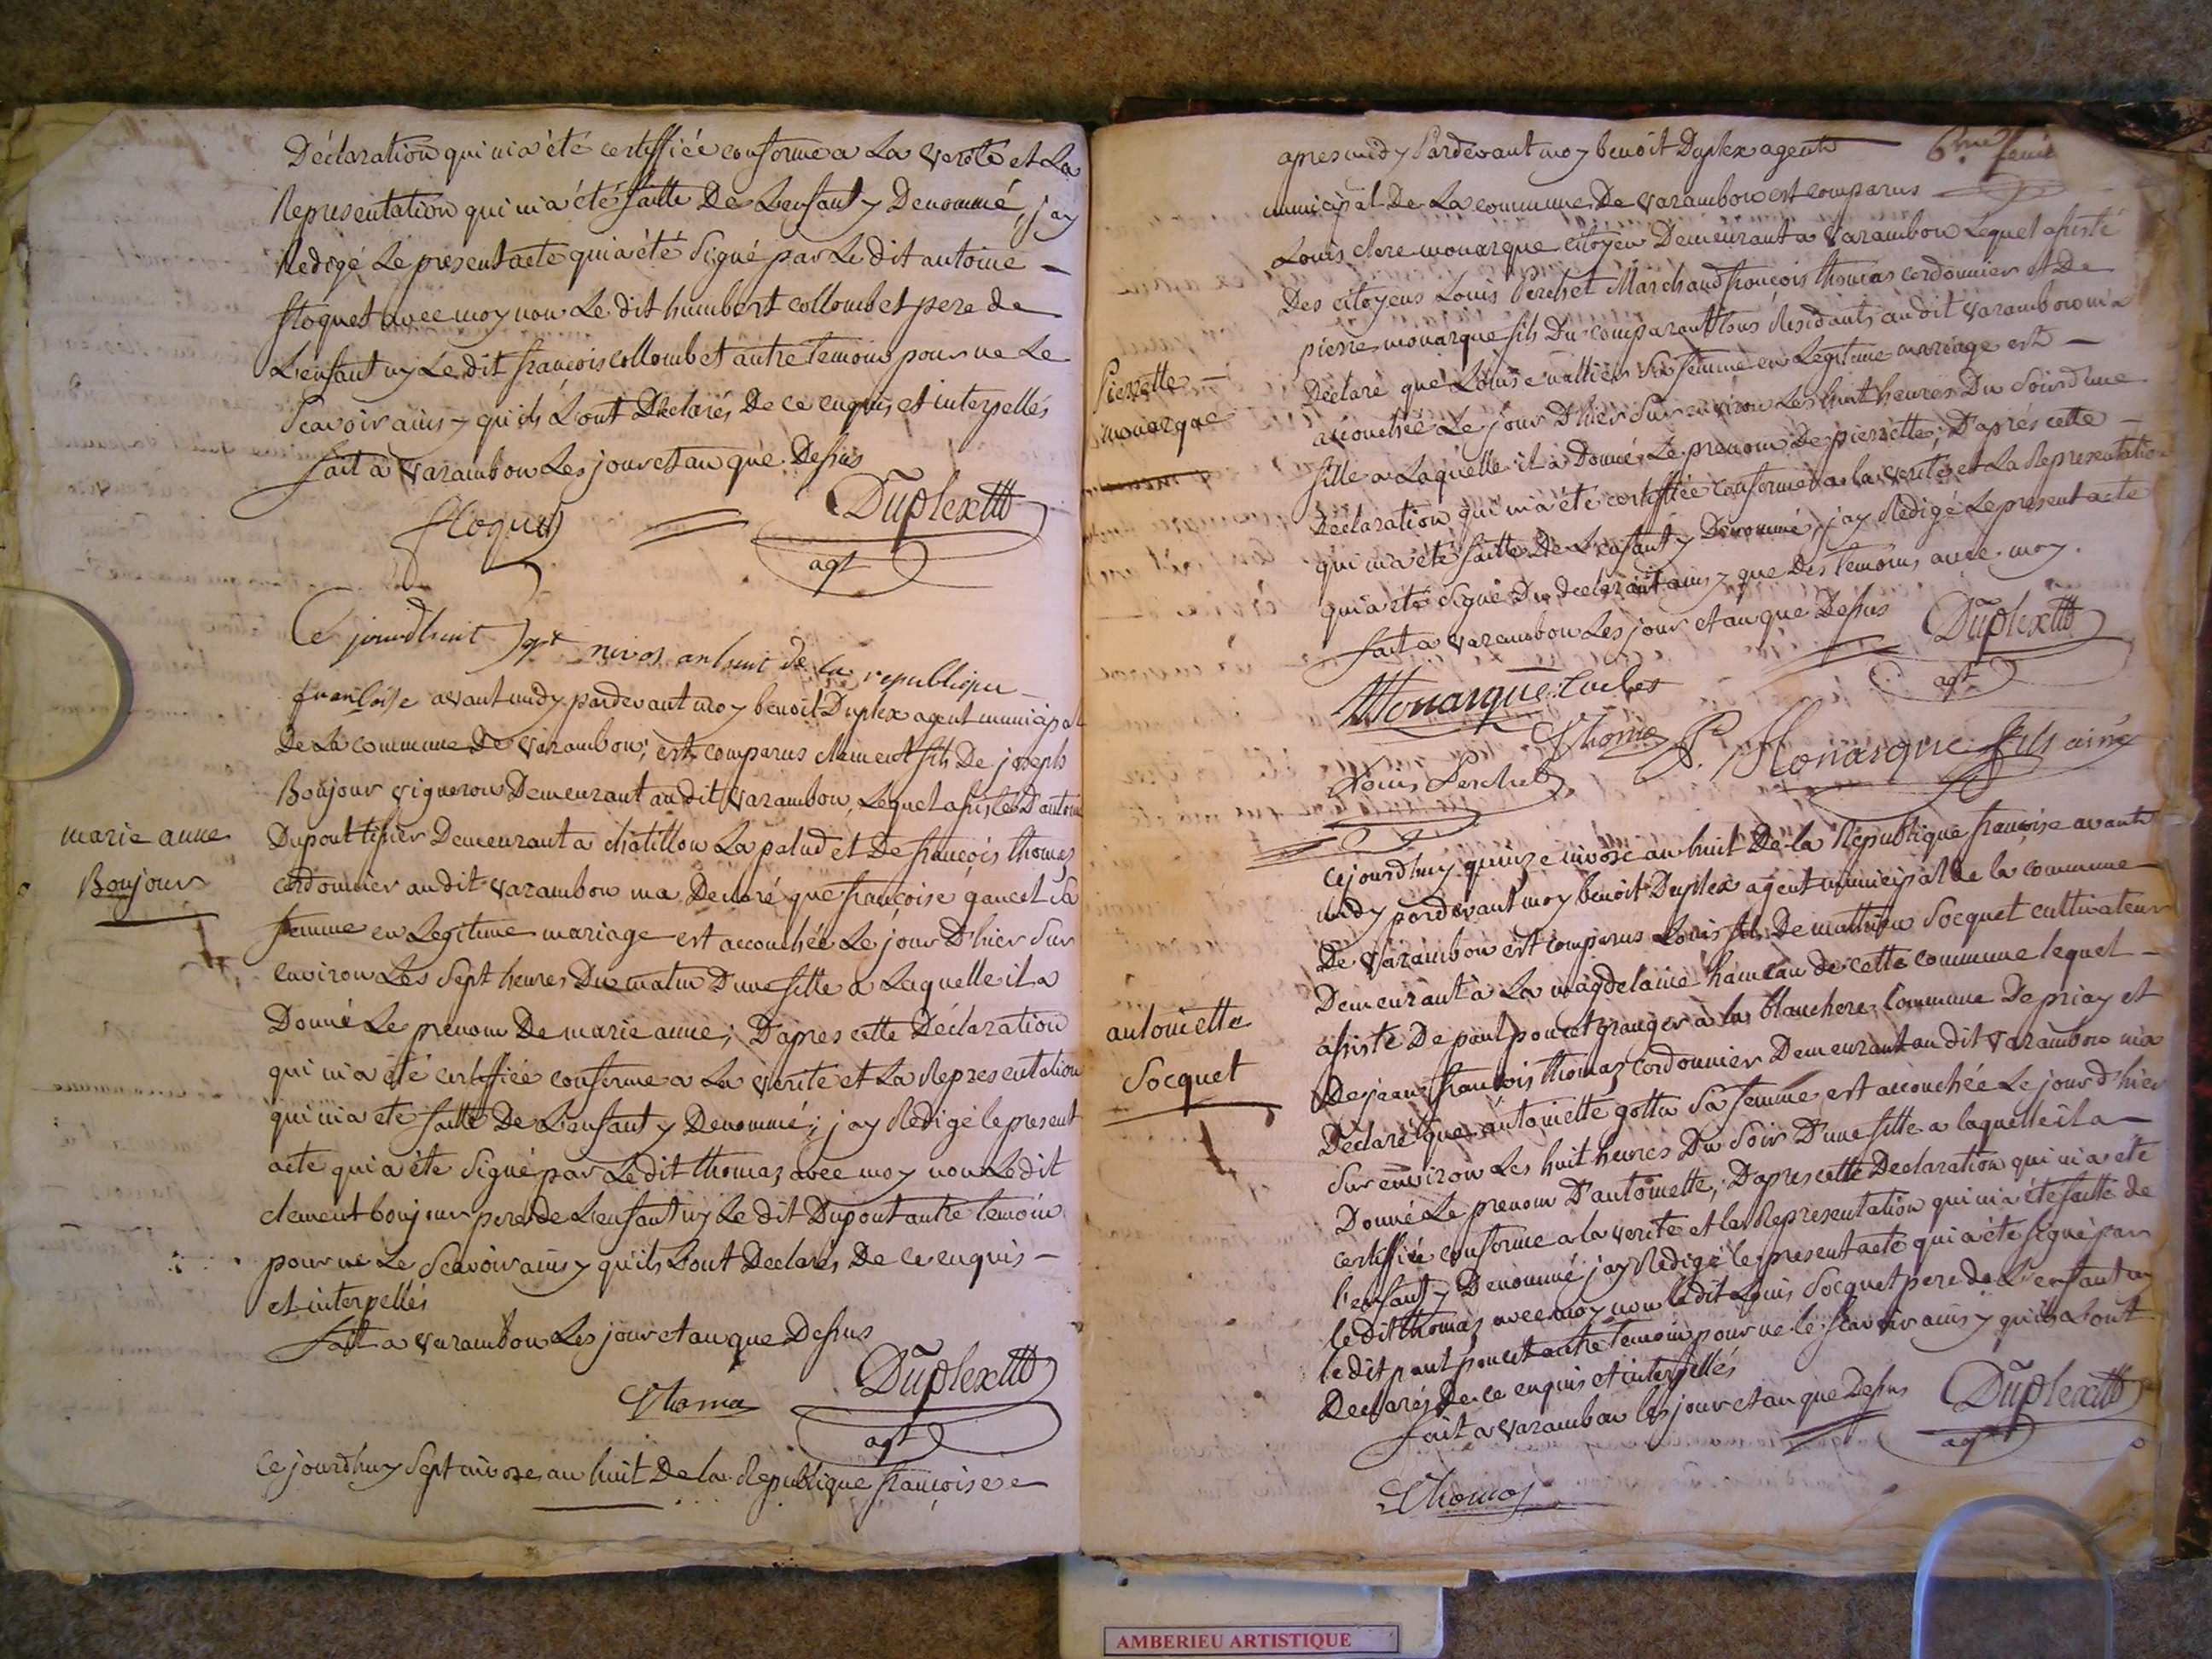 Déclaration qui m'a été certiffiée conforme a La verité et La
Representation qui m'a été faitte De L'enfant y Denommé, jay
Redigé Le present acte qui a été Signé par Le dit antoine —
floquet avec moy non Le dit humbert collombet pere de
L'enfant ny Le dit françois collombet autre temoin pour ne Le
Scavoir ainsy qu'ils L'ont Déclarés De ce enquis et interpellés
fait a varambon Les jour et an que Dessus
floquet
Duplex
agt
Ce jourdhuit sept nivos an huit de la republique
francoise avant midy pardevant moy benoit Duplex agent municipal
De La commune De varambon; est comparus clement fils De joseph
Boujour vigneron Demeurant au dit varambon, Lequel assisté D'antoine
Dupont tissier Demeurant a chatillon La palud et De françois thomas
cordonnier au dit varambon ma Declaré que françoise gancet Sa
femme en Legitime mariage est accouchée Le jour D'hier Sur
environ Les Sept heures Du matin D'une fille a Laquelle il a
Donné Le prenom De marie anne; D'apres cette Déclaration
qui m'a été certiffiée conforme a La verité et La Representation
qui m'a eté faitte De L'enfant y Denommé; jay Redigé le present
acte qui a été Signé par Le dit thomas avec moy non Le dit
clement boujour pere de L'enfant ny Le dit Dupont autre temoin
pour ne Le Scavoir ainsy qu'ils L'ont Declarés De ce enquis —
et interpellés
fait a varambon Les jour et an que Dessus
Thomas
Duplex
agt
Ce jourdhuy Sept nivose an huit De la République françoise
marie anne
Boujour
6me feuil
apres midy Pardevant moy benoit Duplex agent
municipal De La commune De varambon est comparus
Louis clere monarque citoyen Demeurant a varambon Lequel assisté
Des citoyens Louis Perchet Marchand françois thomas cordonnier et De
pierre monarque fils Du comparant tous Residants au dit varambon m'a
Declaré que Louise Sa femme en Legitime mariage est —
accouchée Le jour D'hier Sur environ Les huit heures Du Soir d'une
fille a Laquelle il a Donné Le prenom De pierrette; D'après cette —
Declaration qui m'a été certiffiée conforme a la verité et La Representation
qui m'a été faitte De L'enfant y Denommé, jay Redigé Le present acte
qui a été Signé Du declarant ainsy que Des temoins avec moy.
fait a varambon Les jour et an que Dessus
Duplex
agt
Monarque
Thomas
P. Monarque fils ainé
Louis Perchet
Pierrette
monarque
Ce jourdhuy quinze nivose an huit De la République françoise avant
midy pardevant moy benoit Duplex agent municipal de la commune
De varambon est comparus Louis fils De mathieu Socquet cultivateur
Demeurant a La magdelaine hameau de cette commune lequel —
assisté De paul poncet granger a la blanchere commune De priay et
De jean françois thomas cordonnier Demeurant au dit varambon m'a
Declaré que antoinette Sa femme est accouchée Le jour d'hier
Sur environ Les huit heures Du Soir D'une fille a laquelle il a —
Donné Le prenom D'antoinette; D'apres cette Declaration qui m'a été
certiffiée conforme a la verité et la Representation qui m'a été faitte de
l'enfant y Denommé jay Redigé le present acte qui a été signé par
le dit thomas avec moy non le dit Louis Socquet pere de L'enfant ny
le dit paul poncet autre temoin pour ne le scavoir ainsy qu'ils L'ont
Declarés De ce enquis et interpellés
fait a varambon les jour et an que Dessus
Duplex
agt
Thomas
antoinette
Socquet
AMBERIEU ARTISTIQUE